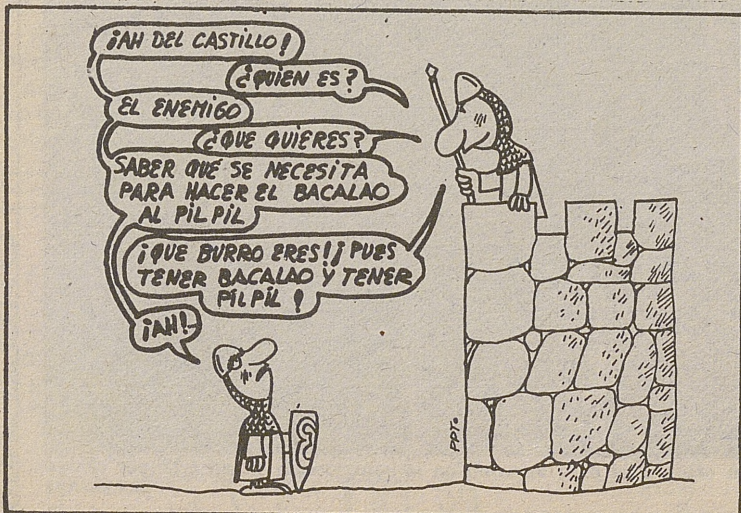 ¡AH DEL CASTILLO!
¿QUIEN ES?
EL ENEMIGO
¿QUE QUIERES?
SABER QUÉ SE NECESITA
PARA HACER EL BACALAO
AL PIL PIL
¡QUE BURRO ERES! ¡PUES
TENER BACALAO Y TENER
PIL PIL!
¡AH!
PPT.